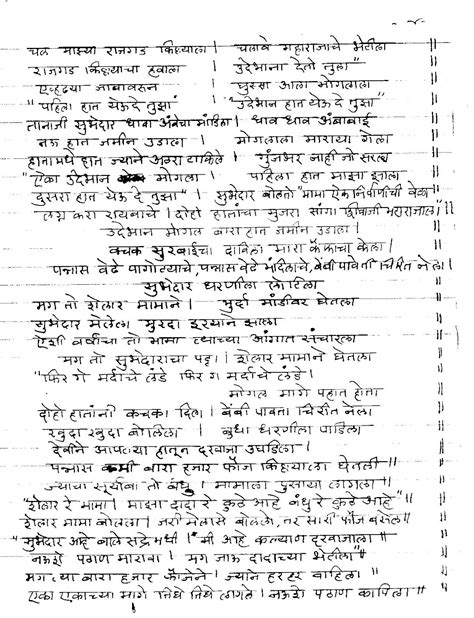 -४-
चल माझ्या राजगड किल्ल्याला | चलावे महाराजाचे भेटीला ||
राजगड किल्ल्याचा हवाला | उदेभाना देतो तुला" ||
एव्हढ्या जाबावरून | घुस्सा आला मोगलाला ||
"पहिला हात येऊ दे तुझा" | "उदेभान हात येऊ दे तुझा" ||
तानाजी सुभेदार धावा अंबेचा मांडिला | धाव धाव अंबाबाई ||
नऊ हात जमीन उडाला | मोगलाला माराया गेला ||
हातामधे हात ज्याने अवरा टाकिले | गुंजभर नाही जो सरला ||
"ऐका उदेभान मोगला | पहिला हात माझा झाला ||
दुसरा हात येऊ दे तुझा" | सुभेदार बोलतो "मामा ऐका निर्वाणीची वेळ ||
लग्न करा रायबाचे | दोही हाताचा मुजरा सांगा शिवाजी महाराजाला" ||
उदेभान मोगल बारा हात जमीन उडाला |
कचक सुरबाईचा दाविला मारा केला |
पन्नास वेढे पागोट्याचे, पन्नास वेढे मंदिलाचे, बेंबी पावेतो चिरीत नेला |
सुभेदार धरणीला लोटिला ||
मग तो शेलार मामाने | मुर्दा मांडीवर घेतला ||
सुभेदार मेलेला मुरदा झाला ||
ऐशी वर्षाचा तो मामा त्याच्या अंगात संचारला ||
मग तो सुभेदाराचा पट्टा | शेलार मामाने घेतला ||
"फिर गे मर्दाचे लंडे फिर ग मर्दाचे लंडे |
मोगल मागे पहात होता ||
दोही हातांनी कचका दिला | बेंबी पावता चिरीत नेला ||
खुदा खुदा बोलिला | बुधा धरणीला पाडिला ||
देवीने आपल्या हातून दरवाजा उघडिला |
पन्नास कमी बारा हजार फौज किल्ल्याला घेतली ||
ज्याचा सूर्याबा तो बंधु | मामाला पुसाया लागला ||
"शेलार रे मामा | माझा दादा रे कुठे आहे बंधु रे कुठे आहे" ||
शेलार मामा बोलला | जरी मेलासे बोलले, तर सारी फौज बसेल ||
"सुभेदार आहे बाले सद्रे मधी | मी आहे कल्याण दरवाजाला ||
नऊशे पठाण मारावा | मग जाऊ दादाच्या भेटीला" ||
मग त्या बारा हजार फौजेने | ज्याने हरहर वाहिला ||
एका एकाच्या मागे तिघे तिघे लागले | नऊशे पठाण कापिला ||